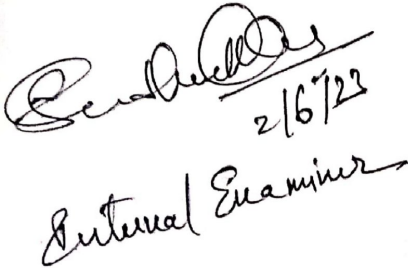 2/6/23
External Examiner